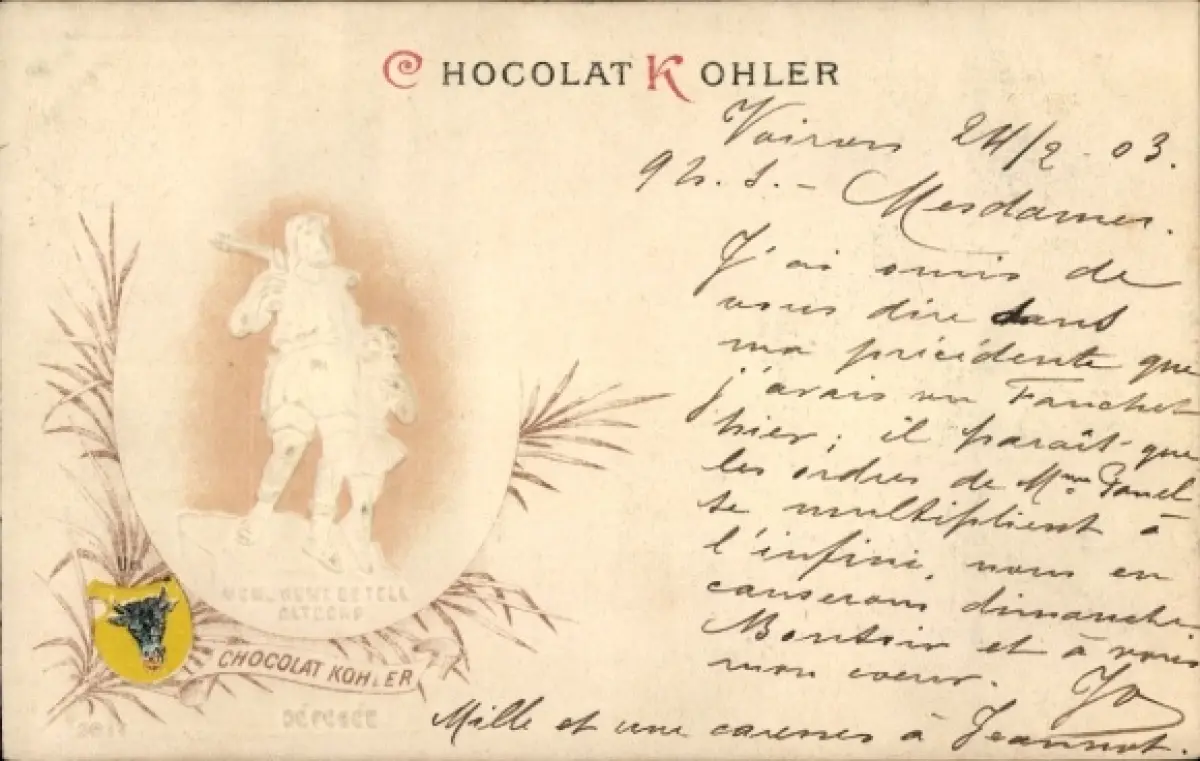 CHOCOLAT KOHLER
Voiron 24/2-03.
9h. s. - Mesdames.
J'ai omis de
vous dire dans
ma précédente que
j'avais vu Fanchet
hier; il paraît que
les ordres de Mme Fanel
se multiplient à
l'infini, nous en
causerons dimanche.
Bonsoir et à vous
mon coeur. Jo
Mille et une caresses à Jeannot.
MONUMENT DE TELL
ALTDORF
CHOCOLAT KOHLER
DÉPOSÉE